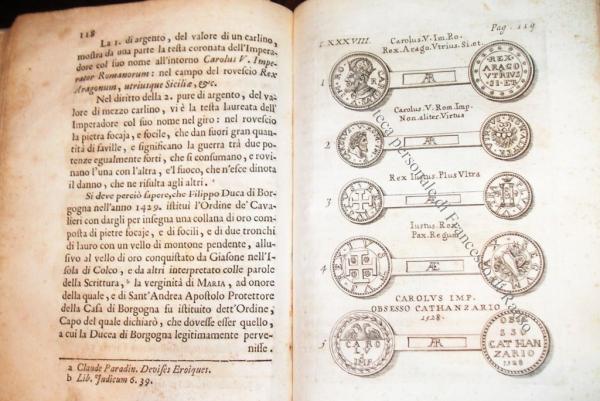 118
La 1. di argento, del valore di un carlino,
mostra da una parte la testa coronata dell'Impera-
dore col suo nome all'intorno Carolus V. Impe-
rator Romanorum: nel campo del rovescio Rex
Aragonum, utriusque Siciliæ, &c.
Nel diritto della 2. pure di argento, del va-
lore di mezzo carlino, vi è la testa laureata dell'
Imperadore col suo nome nel giro: nel rovescio
la pietra focaja, e focile, che dan fuori gran quan-
tità di faville, e significano la guerra trà due po-
tenze egualmente forti, che si consumano, e rovi-
nano l'una con l'altra, e'l fuoco, che n'esce dinota
il danno, che ne risulta agli altri.
Si deve perciò sapere, che Filippo Duca di Bor-
gogna nell'anno 1429. istituì l'Ordine de' Cava-
lieri con dargli per insegna una collana di oro com-
posta di pietre focaje, e di focili, e di due tronchi
di lauro con un vello di montone pendente, allu-
sivo al vello di oro conquistato da Giasone nell'I-
sola di Colco, e da altri interpretato colle parole
della Scrittura, b la verginità di MARIA, ad onore
della quale, e di Sant'Andrea Apostolo Protettore
della Casa di Borgogna fu istituito dett'Ordine,
Capo del quale dichiarò, che dovesse esser quello,
a cui la Ducea di Borgogna legitimamente perve-
nisse.
a Claude Paradin. Devises Eroiques.
b Lib. Judicum 6. 39.
Pag. 119
T. XXXVIII.
Carolus. V. Im. Ro.
Rex. Arago. Vtrius. Si. et.
1
AR
REX
ARAGO
VTRIUS
SI. ET.
Carolus. V. Rom. Imp.
Non. aliter. Virtus
2
Rex Iustus. Plus Vltra
3
Iustus. Rex
Pax. Regum
4
Æ
CAROLUS IMP.
OBSESSO CATHANZARIO
1528.
5
CARO
LV
IMP.
AR
OBSES
SS
CATH
ANZARIO
1528
teca personale di Francesco di